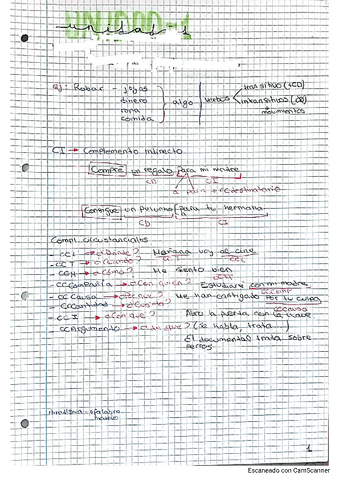 UNIDAD-1
unidad 1
Ej: Robar - joyas
dinero
ropa
comida
algo
verbos
transitivo (+CD)
intransitivos (CR)
movimientos
CI → Complemento indirecto
Compré un regalo para mi madre
CD CI
a, para + destinatario
Consigue un pañuelo para tu hermana
CD CI
Compl. circustanciales
- CCL → ¿Dónde? Mañana voy al cine
- CCT → ¿Cuándo? CCT CCL
- CCM → ¿Cómo? Me siento bien
- CCCompañía → ¿Con quién? Estudiaré con mi madre
- CCCausa → ¿Por qué? Me han castigado por tu culpa
- CCCantidad → ¿Cuánto?
- CCI → ¿Con qué? Abro la puerta con la llave
- CCArgumento → ¿De qué? (Se habla, trata...)
El documental trata sobre
perros
1
Escaneado con CamScanner